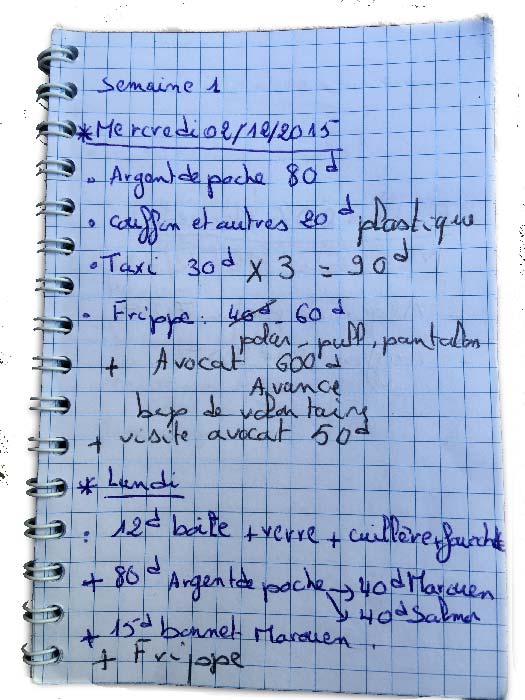 Semaine 1
* Mercredi 02/12/2015
• Argent de poche 80d
• Couffin et autres 20d plastique
• Taxi 30d x 3 = 90d
• Frippe : 40d 60d
polar - pull, pantalon
+ Avocat 600d
Avance
bcp de volontairs
+ visite avocat 50d
* Lundi
• 12d boite + verre + cuillère + fourch
+ 80d Argent de poche → 40d Marouen
↘ 40d Salma
+ 15d bonnet Marouen.
+ Frippe